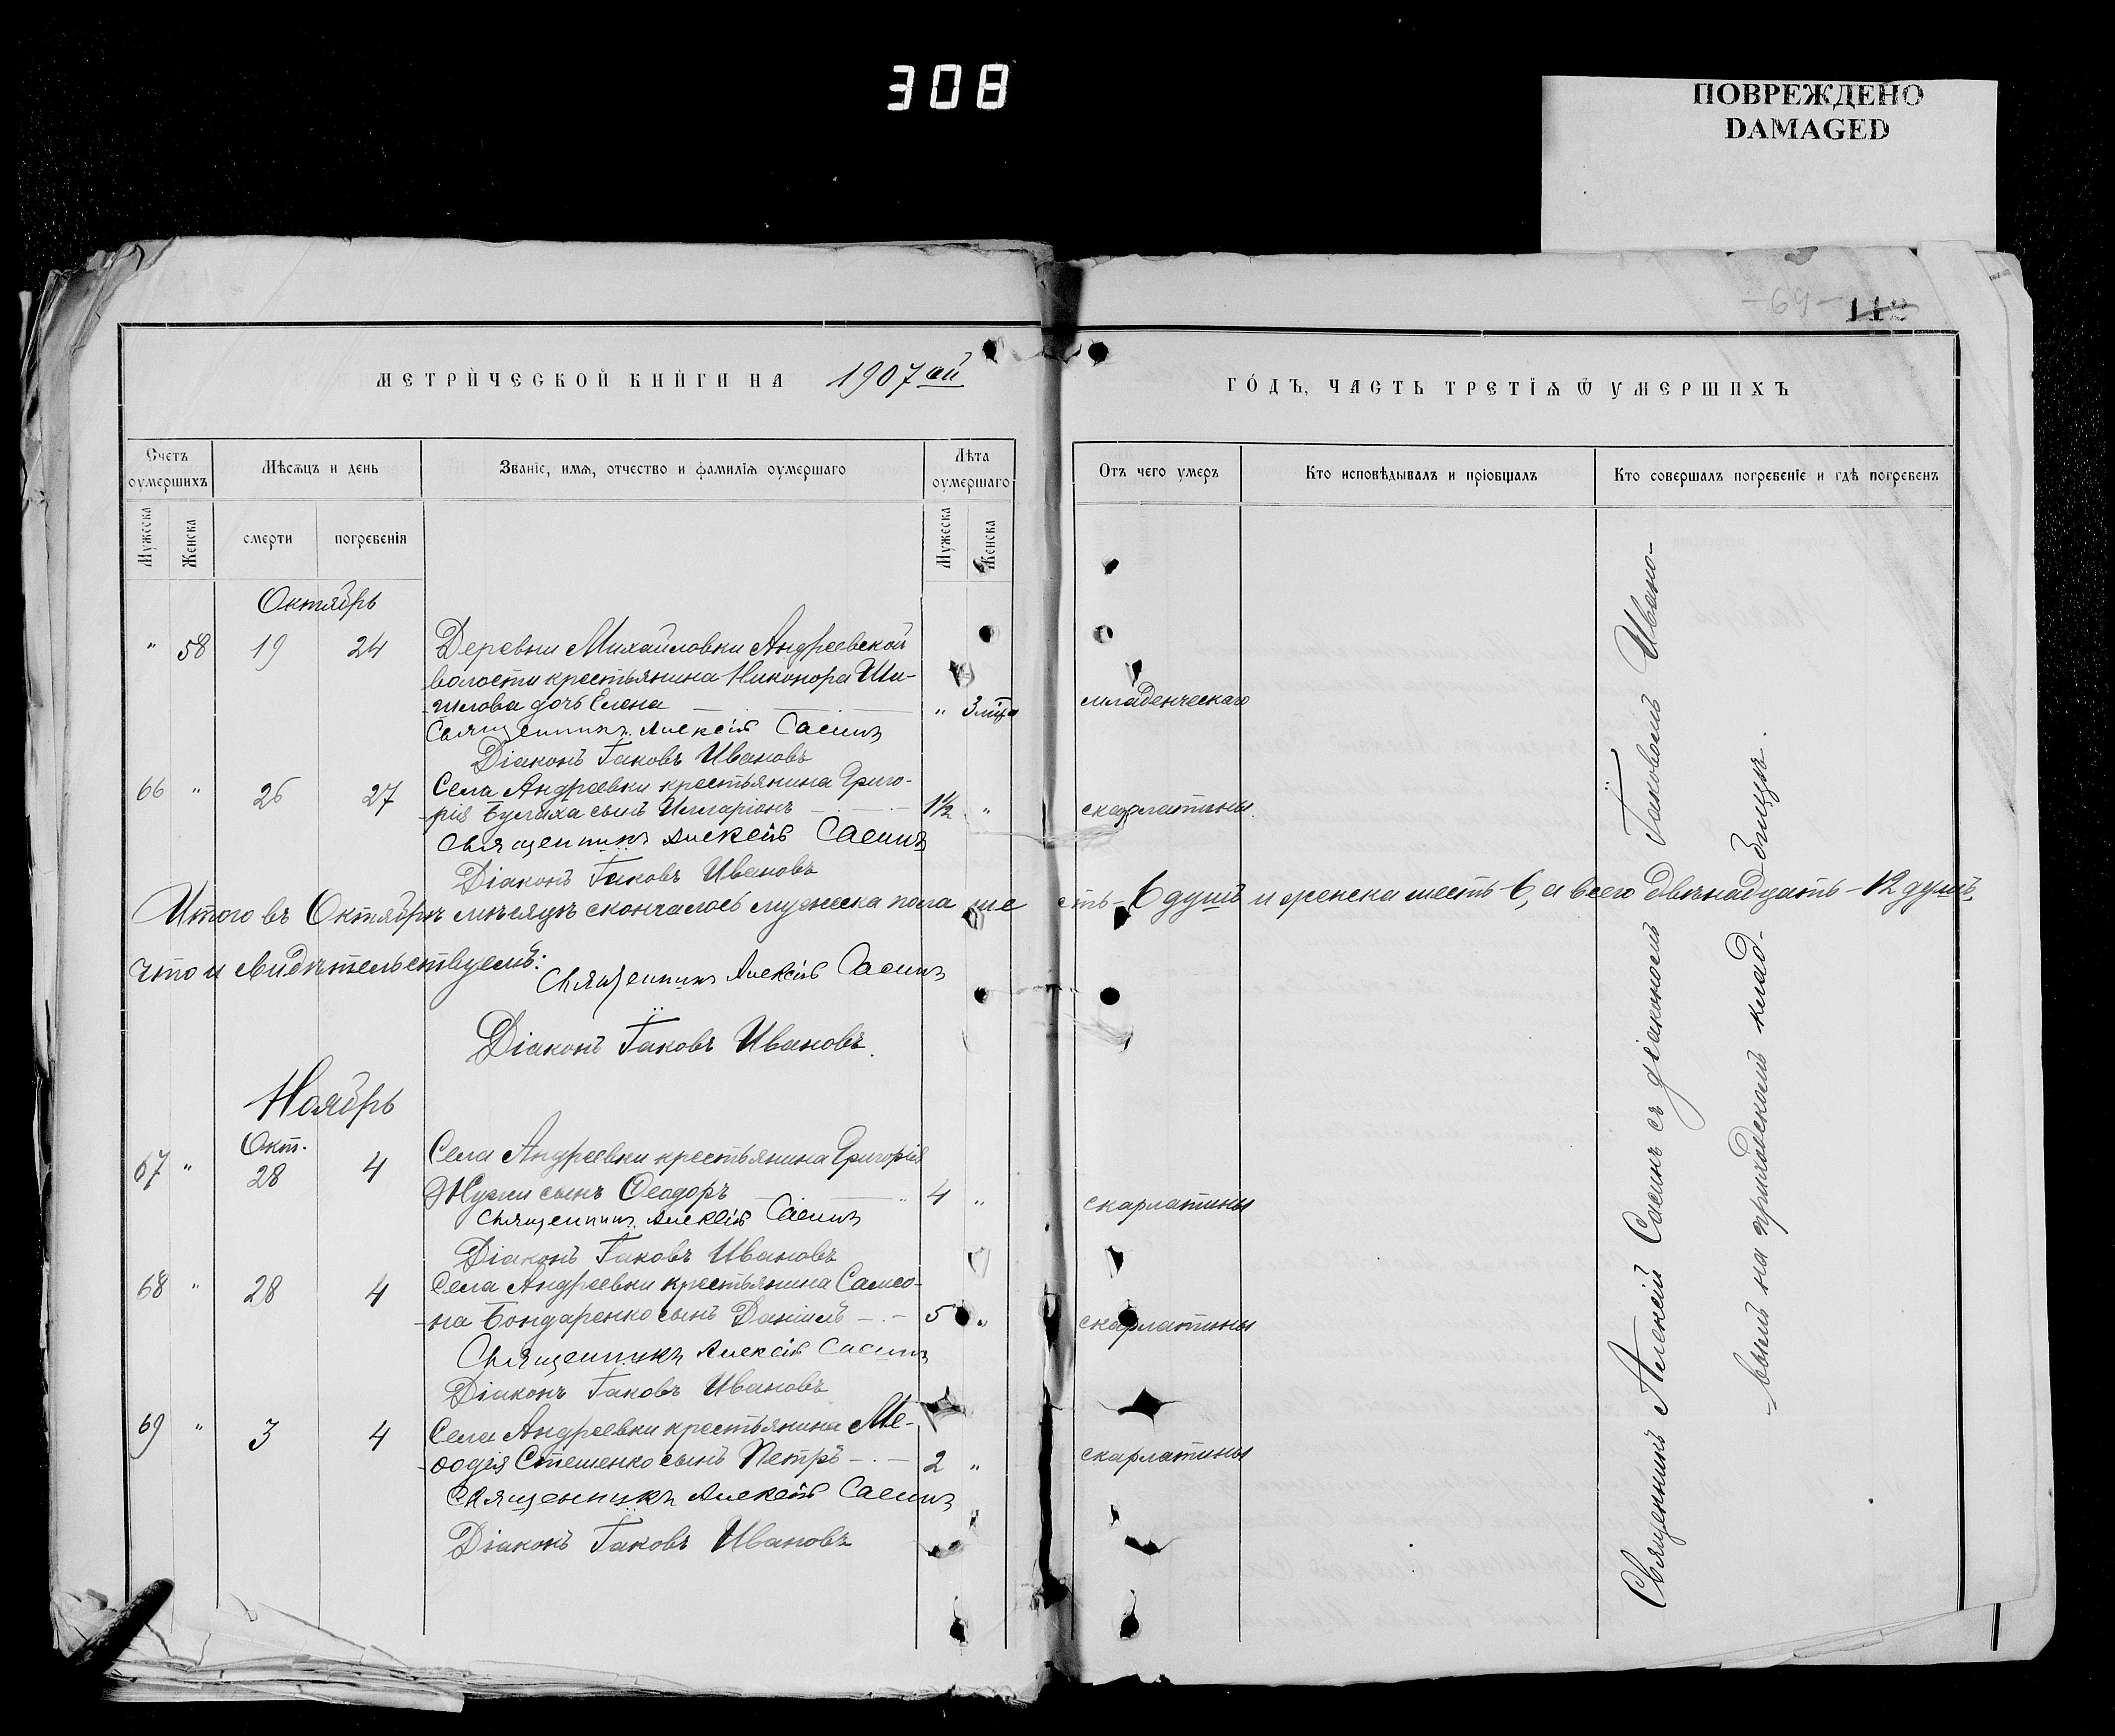 308
ПОВРЕЖДЕНО
DAMAGED
-69-
МЕТРИЧЕСКОЙ КНИГИ НА 1907ый
ГОДЪ, ЧАСТЬ ТРЕТІѦ Ѿ УМЕРШИХЪ
Счетъ оумершихъ
Мѣсѧцъ и день
Званіе, имѧ, отчество и фамиліѧ оумершаго
Лѣта оумершаго
Отъ чего умеръ
Кто исповѣдывалъ и пріобщалъ
Кто совершалъ погребеніе и гдѣ погребенъ
Мужеска
Женска
смерти
погребенія
Мужеска
Женска
Октябрь
" 58 19 24 Деревни Михайловки Андреевской
волости крестьянина Никонора Ши-
-пилова дочь Елена " 3 мѣца младенческаго
Священникъ Алексій Сасинъ
Діаконъ Іаковъ Ивановъ
66 " 26 27 Села Андреевки крестьянина Григо-
-рія Булаха сынъ Илларіонъ 1½ " скарлатины.
Священникъ Алексій Сасинъ
Діаконъ Іаковъ Ивановъ
Итого въ Октябрѣ мѣсяцѣ скончалось мужеска пола шесть - 6 душъ и женска шесть - 6, а всего двѣнадцать - 12 душъ,
что и свидѣтельствуемъ:
Священникъ Алексій Сасинъ
Діаконъ Іаковъ Ивановъ.
Ноябрь
Окт.
67 " 28 4 Села Андреевки крестьянина Григорія
Жужи сынъ Ѳеодоръ 4 " скарлатины
Священникъ Алексій Сасинъ
Діаконъ Іаковъ Ивановъ
68 " 28 4 Села Андреевки крестьянина Самсо-
-на Бондаренко сынъ Даніилъ 5 " скарлатины
Священникъ Алексій Сасинъ
Діаконъ Іаковъ Ивановъ
69 " 3 4 Села Андреевки крестьянина Ме-
-ѳодія Стешенко сынъ Петръ 2 " скарлатины
Священникъ Алексій Сасинъ
Діаконъ Іаковъ Ивановъ
Священникъ Алексій Сасинъ съ діакономъ Іаковомъ Ивано-
-вымъ на приходскомъ клад-
бищѣ.